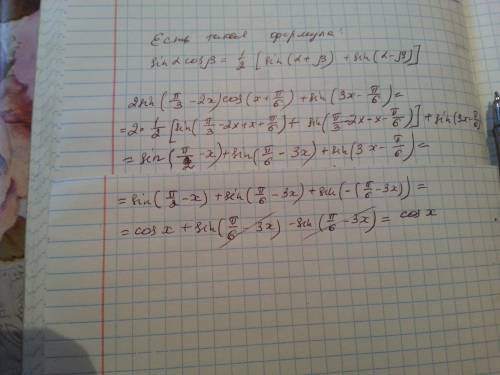 Есть такая формула:
sin α cos β = 1/2 [sin(α+β) + sin(α-β)]
2sin(π/3 - 2x)cos(x+π/6) + sin(3x - π/6) =
= 2 · 1/2 [sin(π/3 - 2x + x + π/6) + sin(π/3 - 2x - x - π/6)] + sin(3x - π/6)
= sin(π/2 - x) + sin(π/6 - 3x) + sin(3x - π/6) =
= sin(π/2 - x) + sin(π/6 - 3x) + sin(-(π/6 - 3x)) =
= cos x + sin(π/6 - 3x) - sin(π/6 - 3x) = cos x